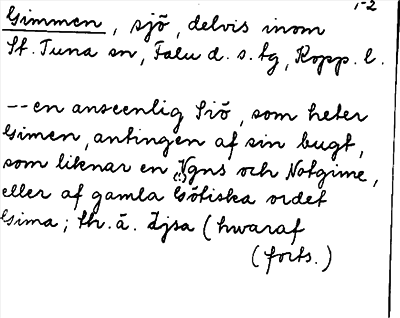 1-2
Gimmen, sjö, delvis inom
St. Tuna sn, Falu d. s. tg, Kopp. l.
--en anseenlig Siö, som heter
Gimen, antingen af sin bugt,
som liknar en Vgns och Notgime,
(!)
eller af gamla Götiska ordet
Gima; th. ä. Ijsa (hwaraf
(forts.)